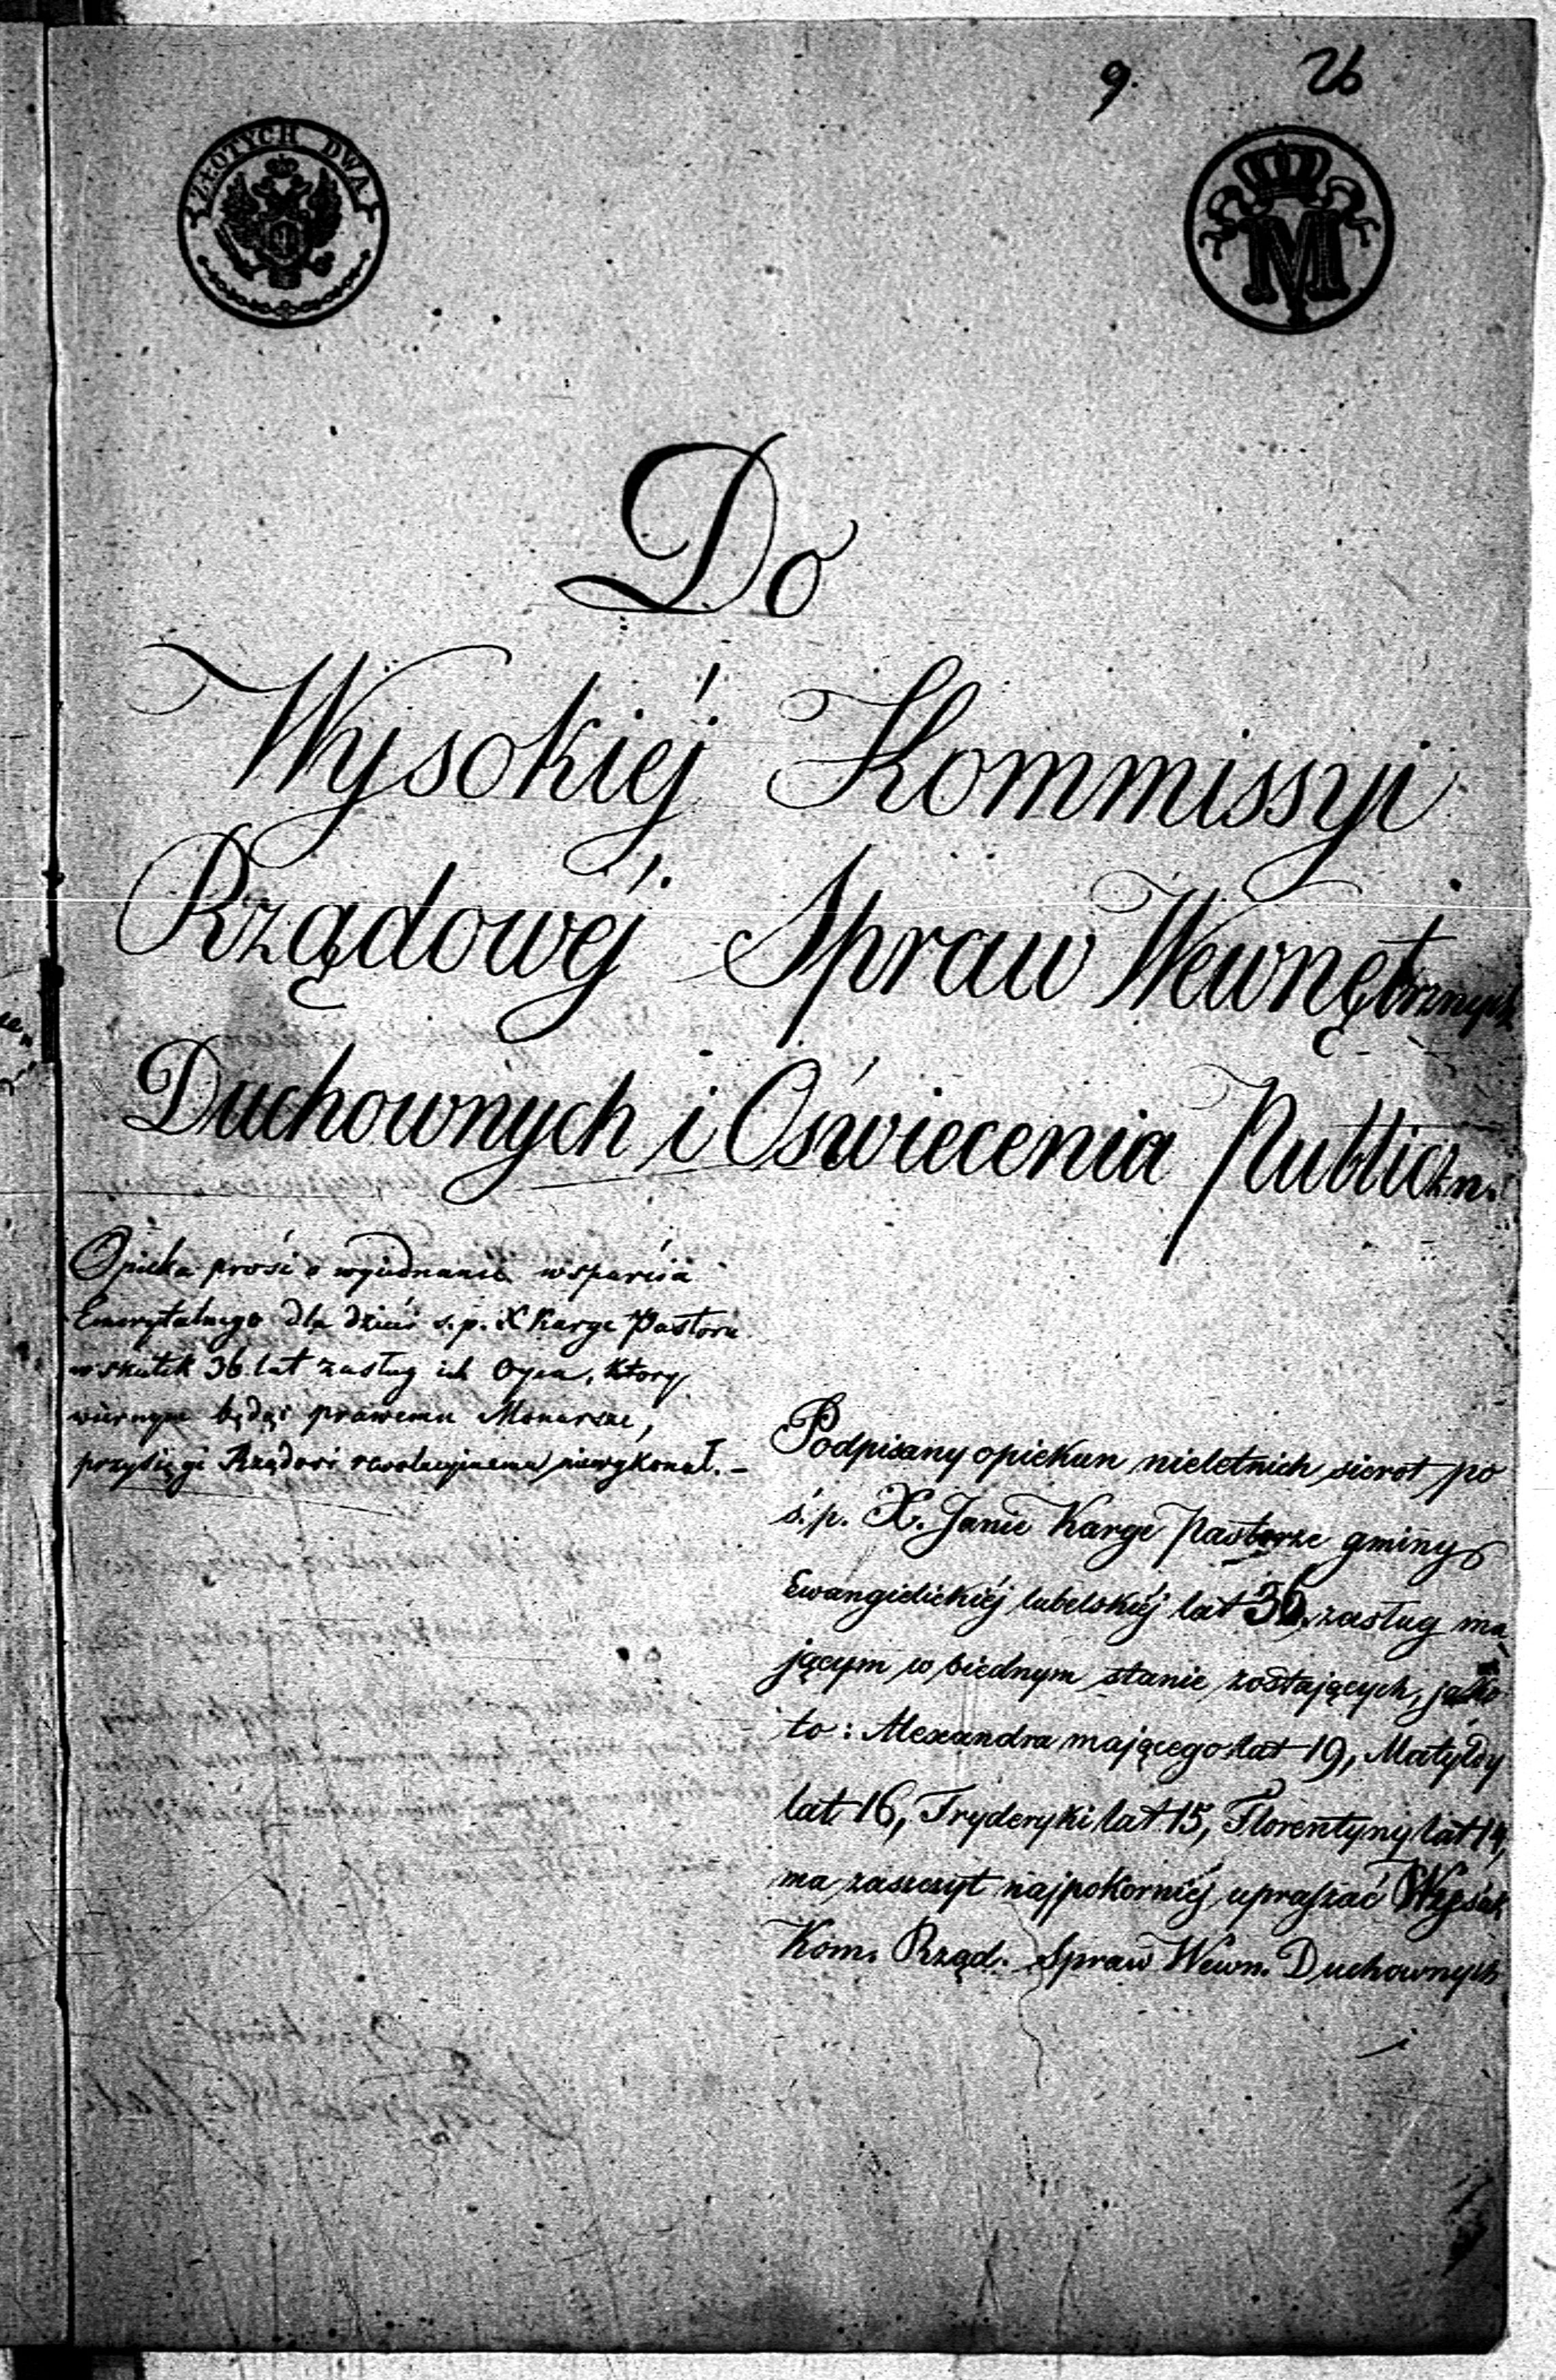 9. 26
ZŁOTYCH DWA
M
Do
Wysokiéj Kommissyi
Rządowéj Spraw Wewnętrznych
Duchownych i Oświecenia Publiczn.
Opieka prosi o wyjednanie wsparcia
Emerytalnego dla dzieci s.p. X Karge Pastora
w skutek 36 lat zasług ich Ojca, ktory
wiernym będąc prawemu Monarsze,
przysięgi Rządowi rewolucyjnemu niewykonał. –
Podpisany opiekun nieletnich sierot po
ś.p. X. Janie Karge Pastorze gminy
Ewangielickiéj lubelskiéj lat 36 zasług ma
jącym w biednym stanie zostających, jako
to: Alexandra mającego lat 19, Matyldy
lat 16, Fryderyki lat 15, Florentyny lat 14,
ma zaszczyt najpokorniéj upraszać Wysok
Kom. Rząd. Spraw Wewn. Duchownych
i